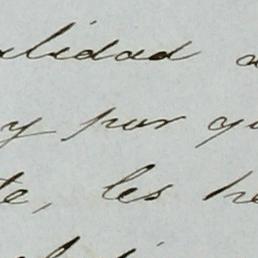 alidad a
y por qu
te, les he